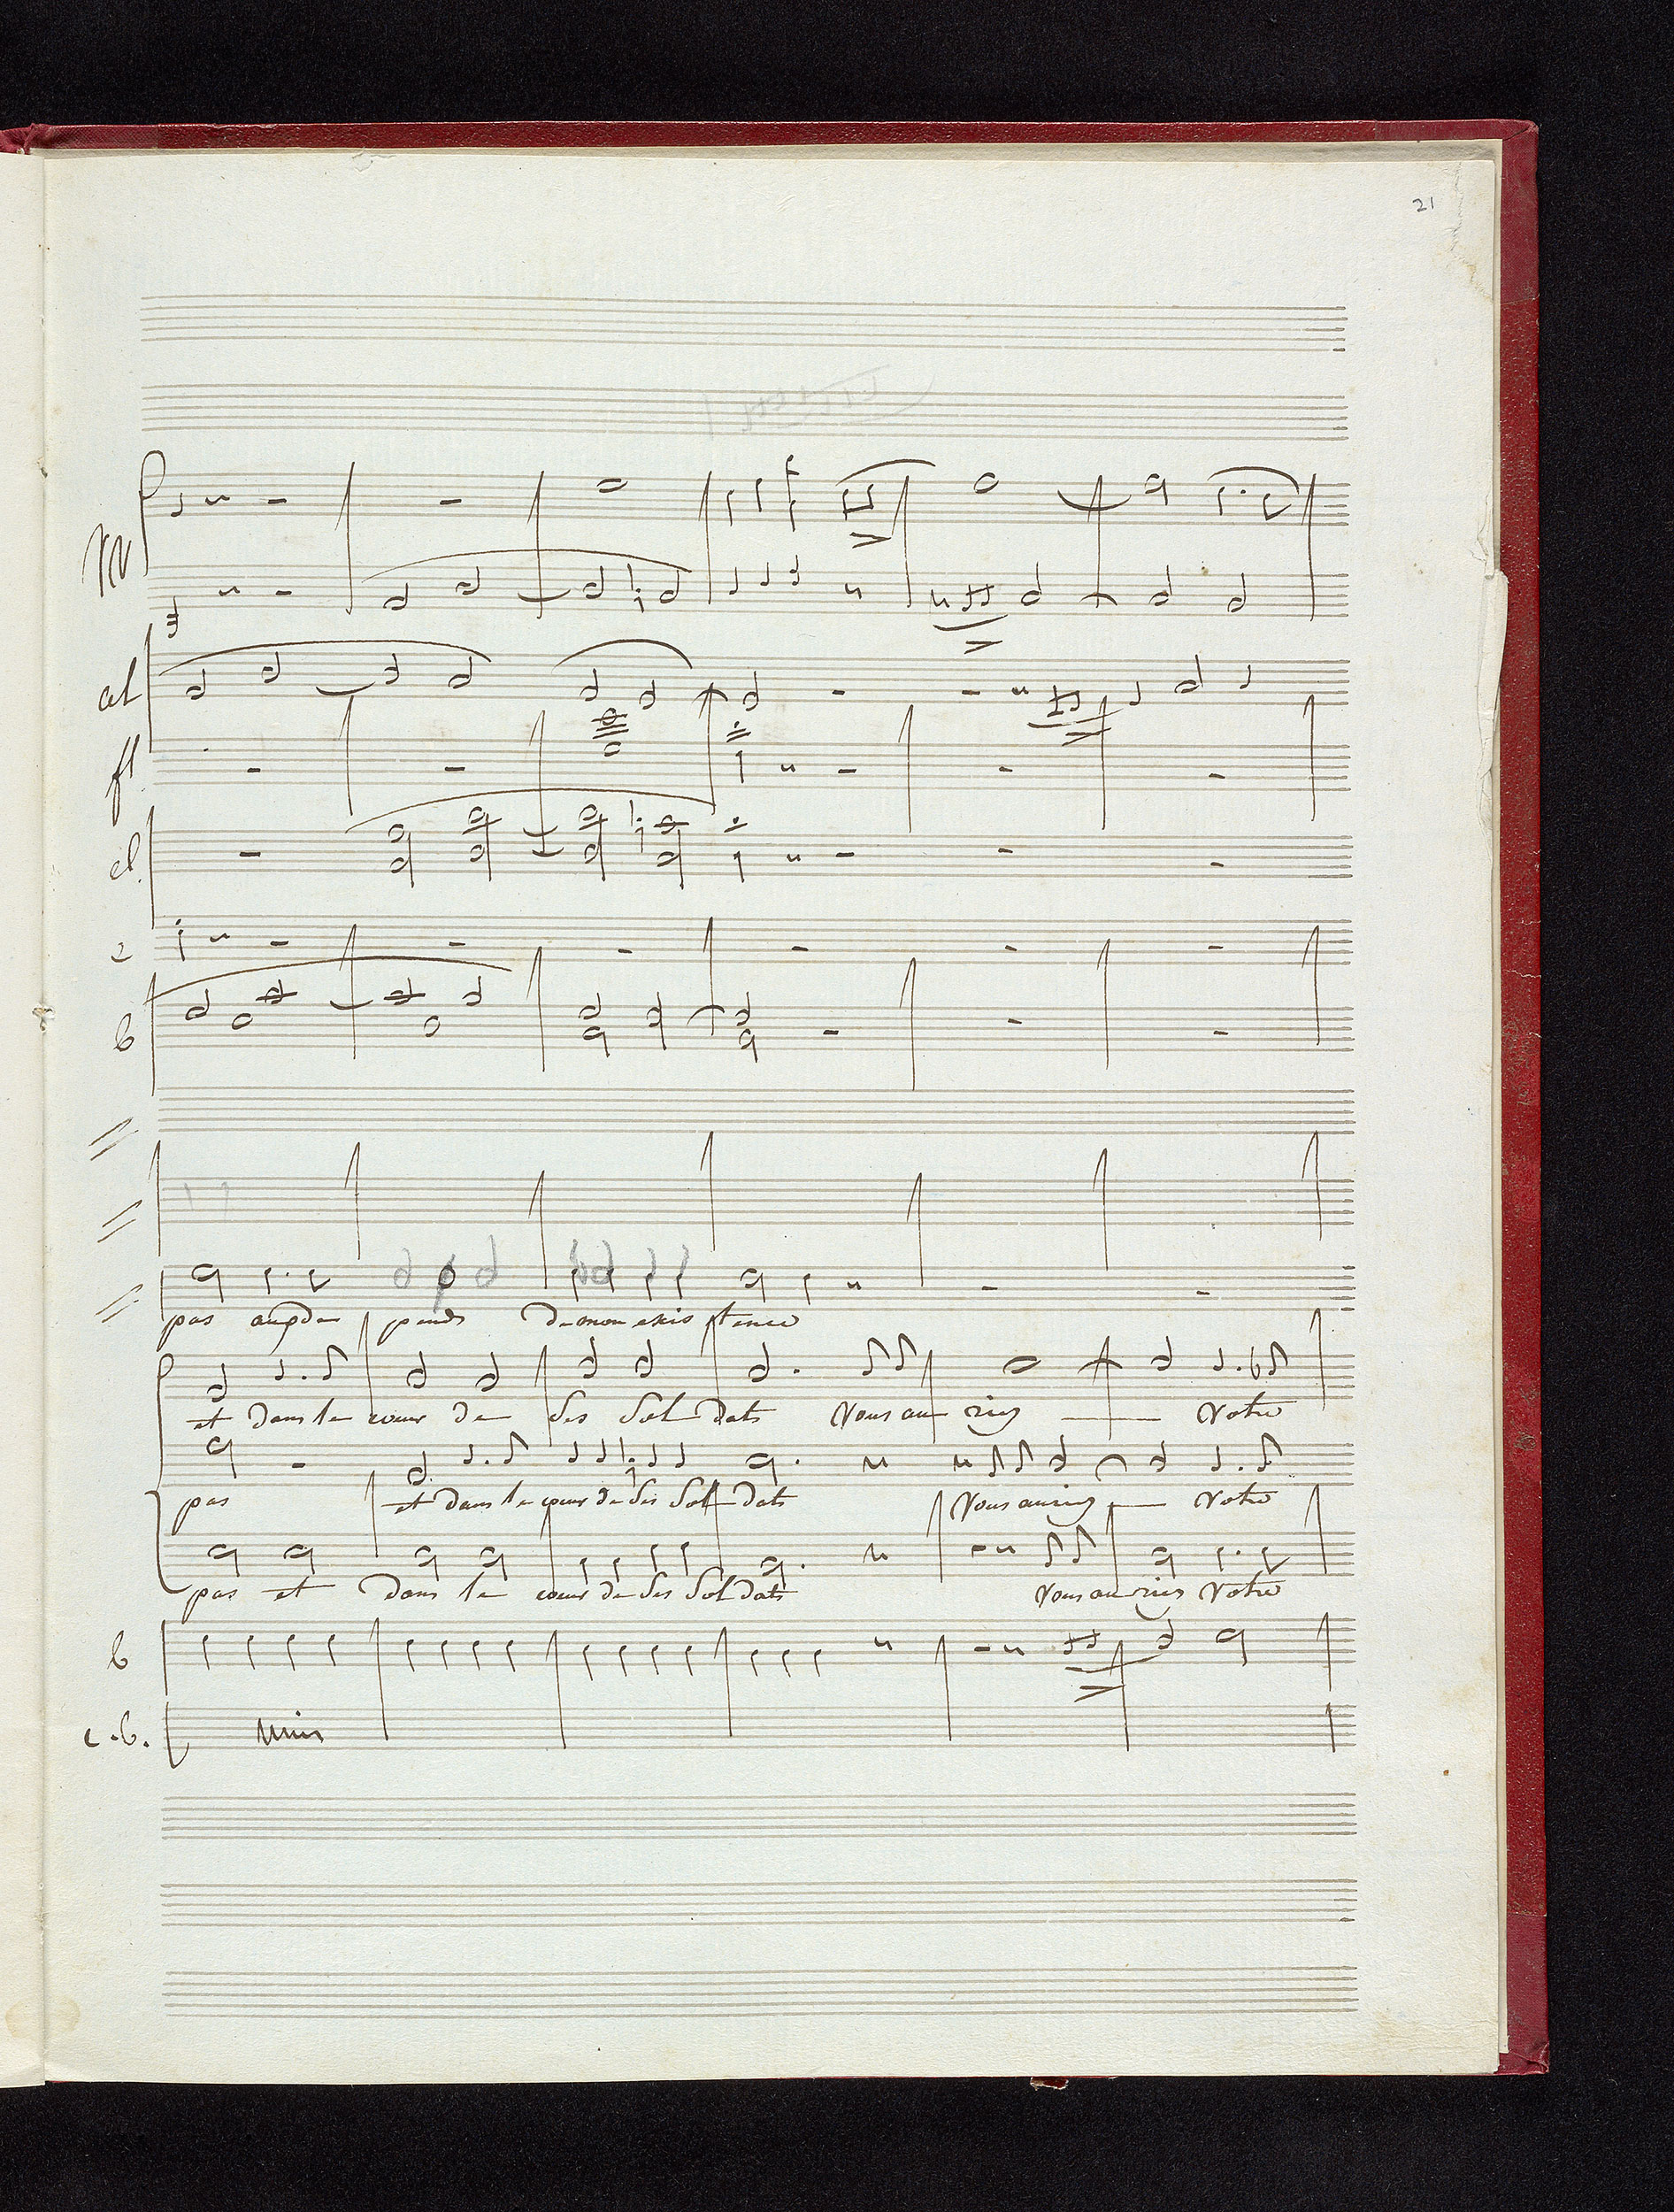 21
VV
al
fl.
cl.
c
b
pas aux de pends de mon exis tence
et dans le cœur de ses Sol dats Vous au riez Votre
pas et dans le cœur de ses Sol dats Vous auriez Votre
pas et dans le cœur de ses Sol dats Vous au riez Votre
b
c.b. unis